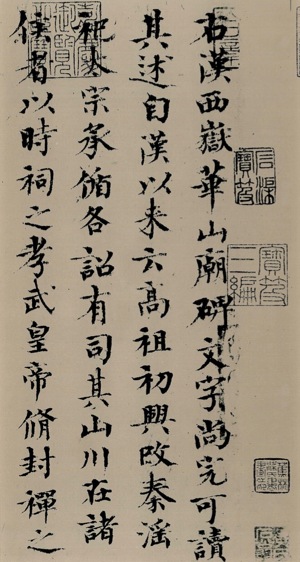 右漢西嶽華山廟碑文字尚完可讀
其述自漢以来云高祖初興改秦淫
祀太宗承循各詔有司其山川在諸
侯者以時祠之孝武皇帝脩封禪之
石渠寶笈
寶笈三編